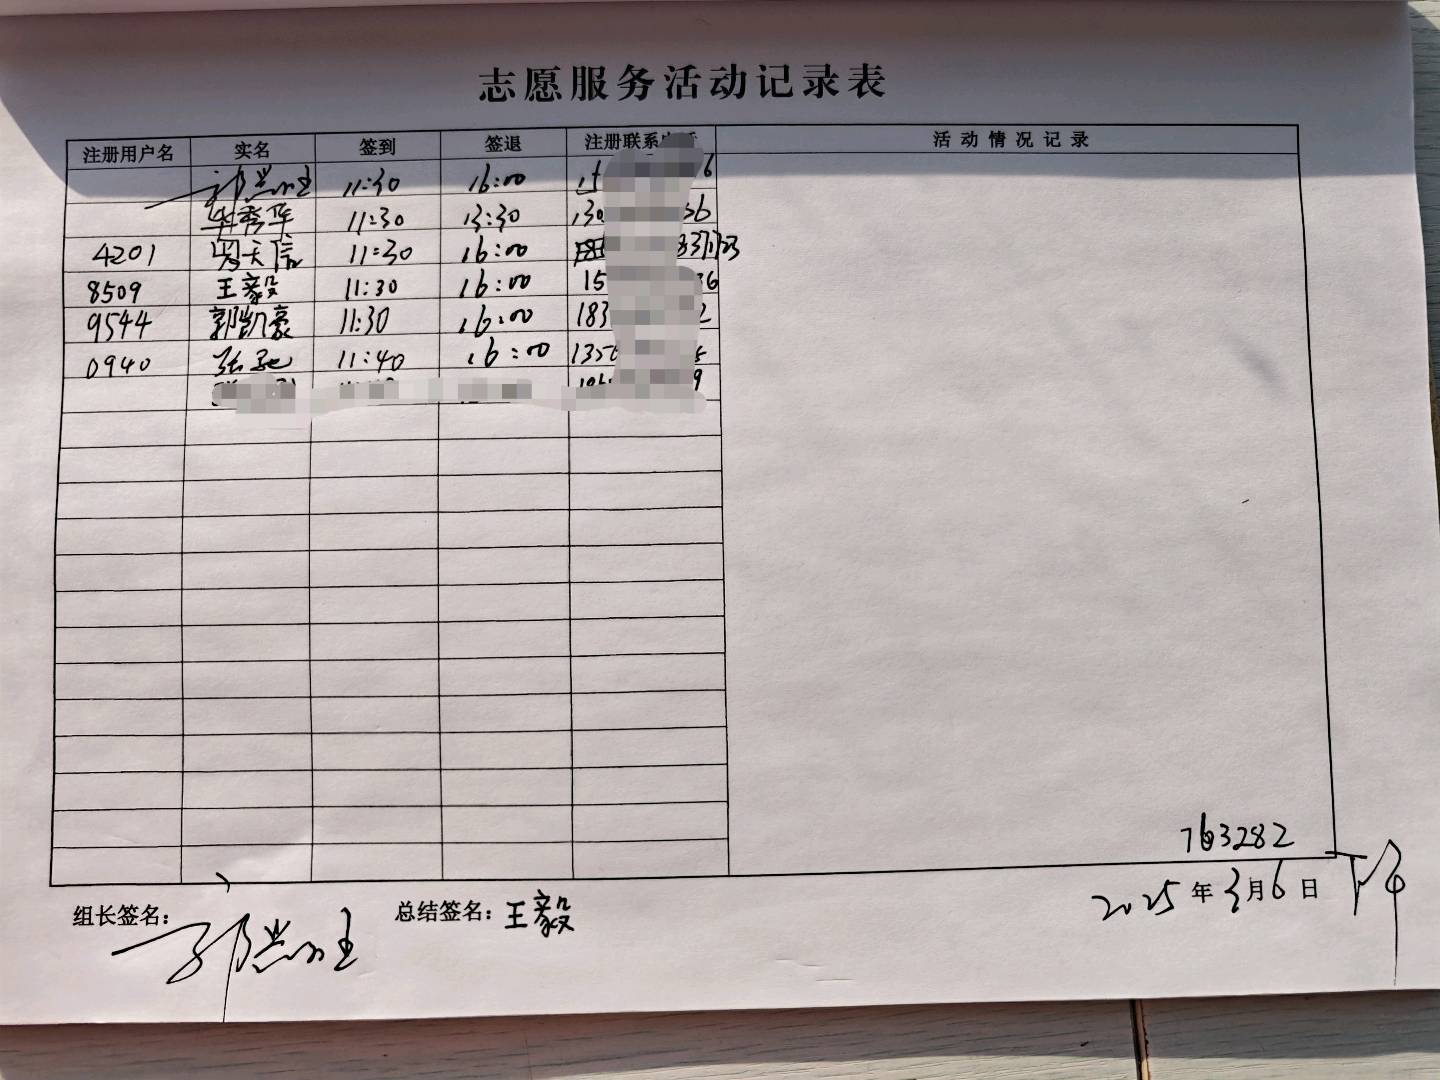 志愿服务活动记录表
注册用户名 实名 签到 签退 注册联系 活动情况记录
11:30 16:00
华秀华 11:30 13:30 130 36
4201 天信 11:30 16:00
8509 王毅 11:30 16:00 15 36
9544 郭凯豪 11:30 16:00 183 2
0940 张驰 11:40 16:00 135
9
763282
组长签名: 总结签名: 王毅 2025年3月6日